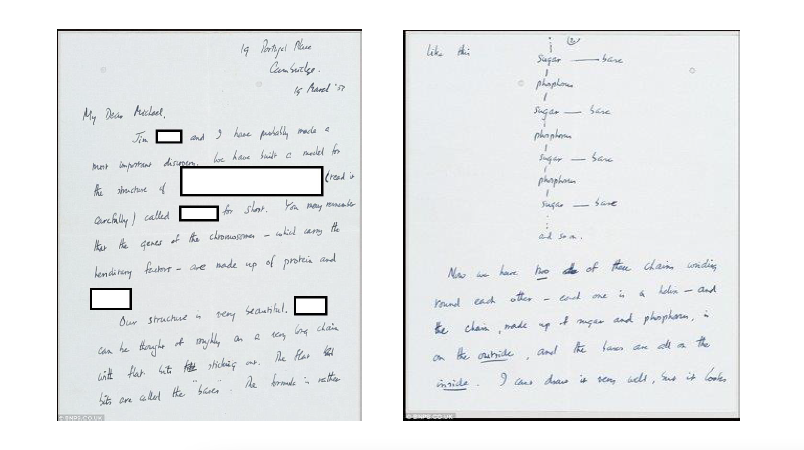 19 Portugal Place
Cambridge.
19 March '53
My Dear Michael,
Jim and I have probably made a
most important discovery. We have built a model for
the structure of (read it
carefully) called for short. You may remember
that the genes of the chromosomes – which carry the
hereditary factors – are made up of protein and
Our structure is very beautiful.
can be thought of roughly as a very long chain
with flat bits sticking out. The flat
bits are called the "bases". The formula is rather
© BNPS.CO.UK
(2)
like this
sugar — base
phosphorus
sugar — base
phosphorus
sugar — base
phosphorus
sugar — base
and so on.
Now we have two of these chains winding
round each other – each one is a helix – and
the chain, made up of sugar and phosphorus, is
on the outside, and the bases are all on the
inside. I can't draw it very well, but it looks
© BNPS.CO.UK